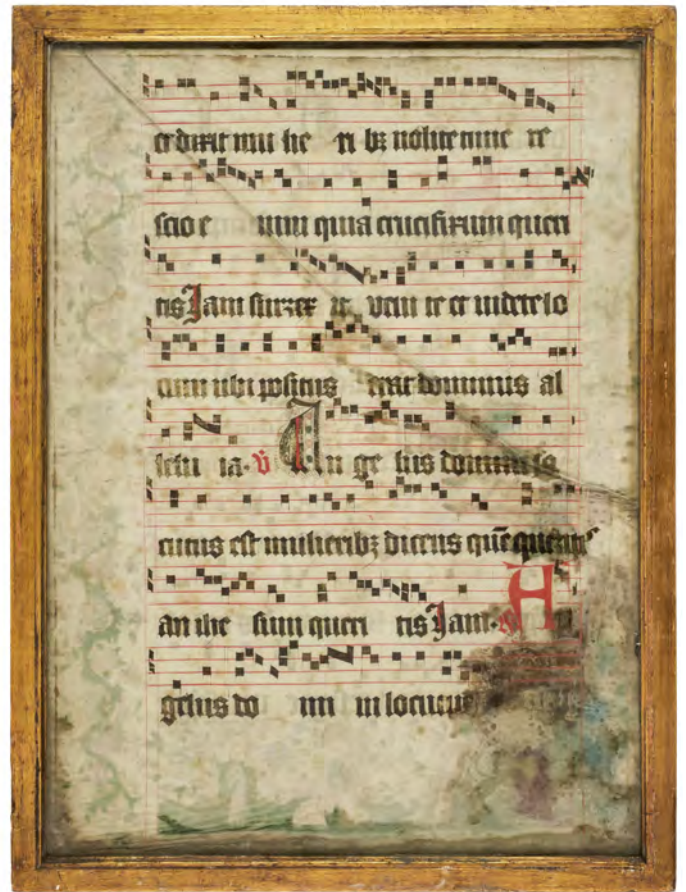 et dixit mu lie ri bꝫ nolite time re
scio e nim quia crucifixum queri
tis Jam surrex it veni te et videte lo
cum ubi positus erat dominus al
lelu ia. v̄ An ge lus domini lo
cutus est mulieribꝫ dicens quē queritis
an ihe sum queri tis Jam. An
gelus do mi ni locutus